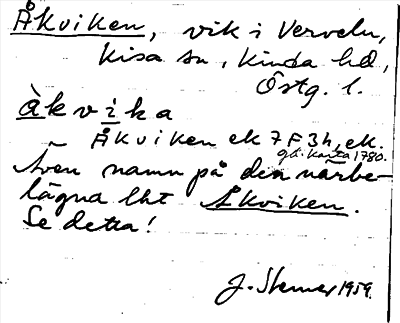 Åkviken, vik i Verveln,
Kisa sn, Kinda hd,
Östg. l.
àkvika
Åkviken ek 7 F 3h, ek.
gä. karta 1780.
Även namn på den närbe-
lägna lht Åkviken.
Se detta!
J. Stemer 1959.